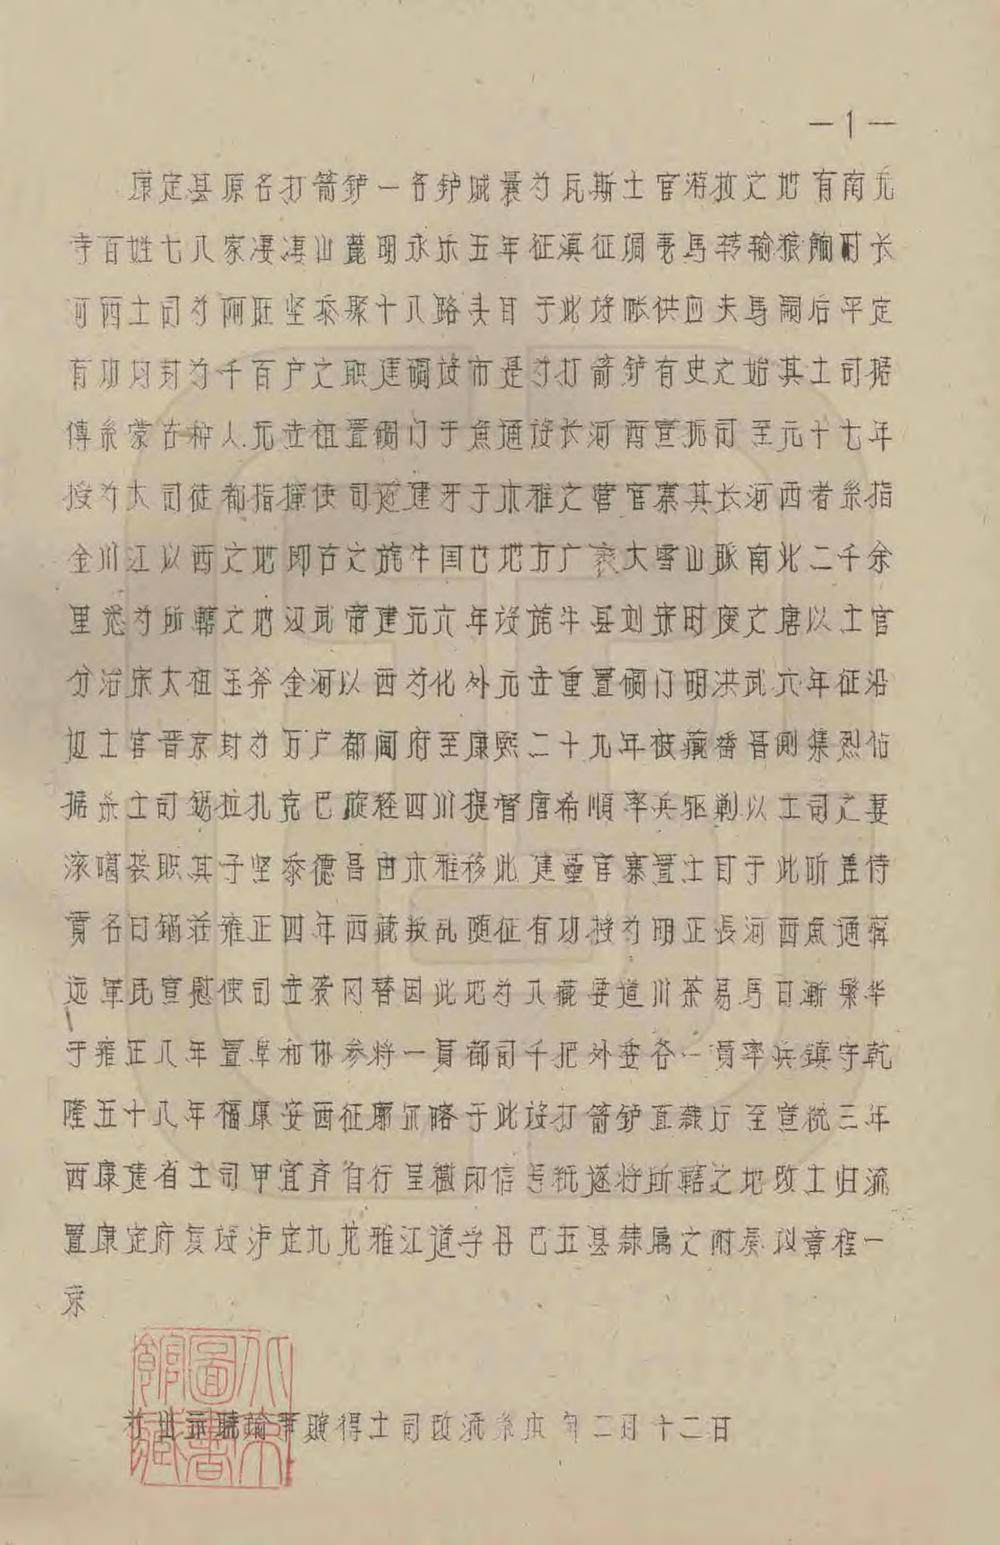 —1—
康定县原名打箭鈩一名鈩城曩为瓦斯土官游牧之地有南无
寺百姓七八家凄凄山麓明永乐五年征滇征碉毫马转输粮餉时长
河西土司为阿旺坚参聚十八路头目于此设账供应夫马嗣后平定
有功因封为千百户之职建碉设市是为打箭鈩有史之始其土司据
傳系蒙古种人元世祖置碉门于魚通设长河西宣抚司至元十七年
授为大司徒都指揮使司遂建牙于木雅之营官寨其长河西者系指
金川江以西之地即古之旄牛国也地方广袤大雪山脉南北二千余
里悉为所轄之地汉武帝建元六年设旄牛县刘宋时废之唐以土官
分治宋太祖玉斧金河以西为化外元世重置碉门明洪武六年征沿
边土官晋京封为万户都闻府至康熙二十九年被藏番昌側集烈佔
据杀土司錫拉扎克巴旋经四川提督唐希順率兵驱剿以土司之妻
滚噶袭职其子坚参德昌由木雅移此建壘官寨置土目于此听差侍
貢名曰鍋莊雍正四年西藏叛乱随征有功授为明正長河西魚通寧
远军民宣慰使司世袭罔替因此地为入藏要道川茶易马日漸繁华
于雍正八年置阜和协参将一員都司千把外委各一員率兵鎮守乾
隆五十八年福康安西征廓尔喀于此设打箭鈩直隸厅至宣統三年
西康建省土司甲宜斉自行呈繳印信号紙遂将所轄之地改土归流
置康定府复设泸定九龙雅江道孚丹巴五县隸属之附奏以章程一